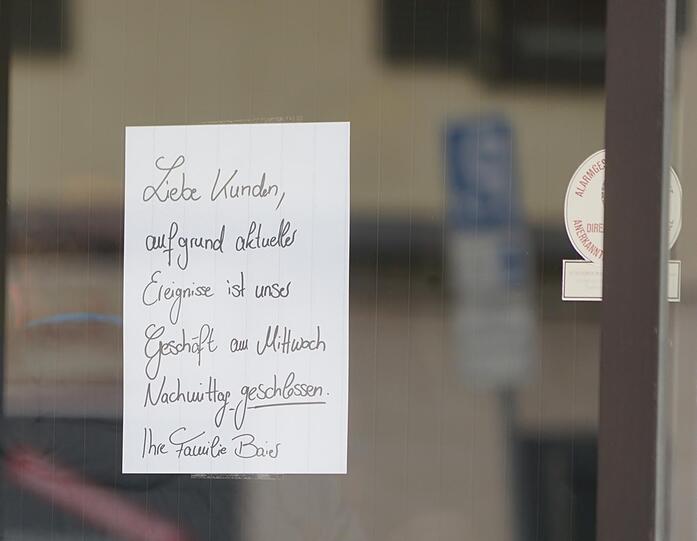 Liebe Kunden,
aufgrund aktueller
Ereignisse ist unser
Geschäft am Mittwoch
Nachmittag geschlossen.
Ihre Familie Baier
ALARMGES
DIRE
ANERKANNT